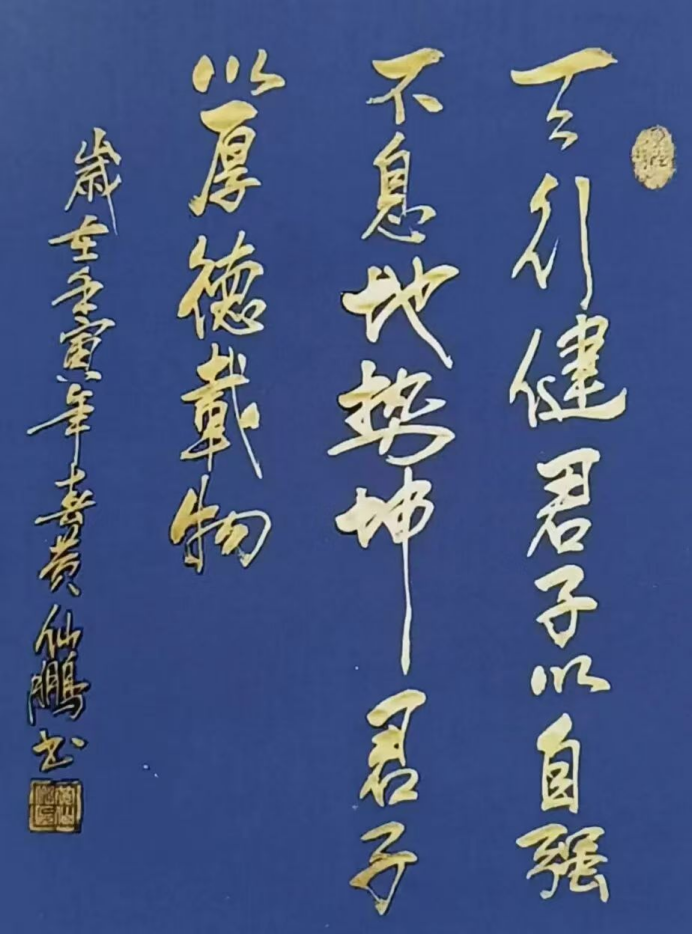 天行健君子以自强
不息地势坤君子
以厚德載物
歲在壬寅年春黄仙鵬书